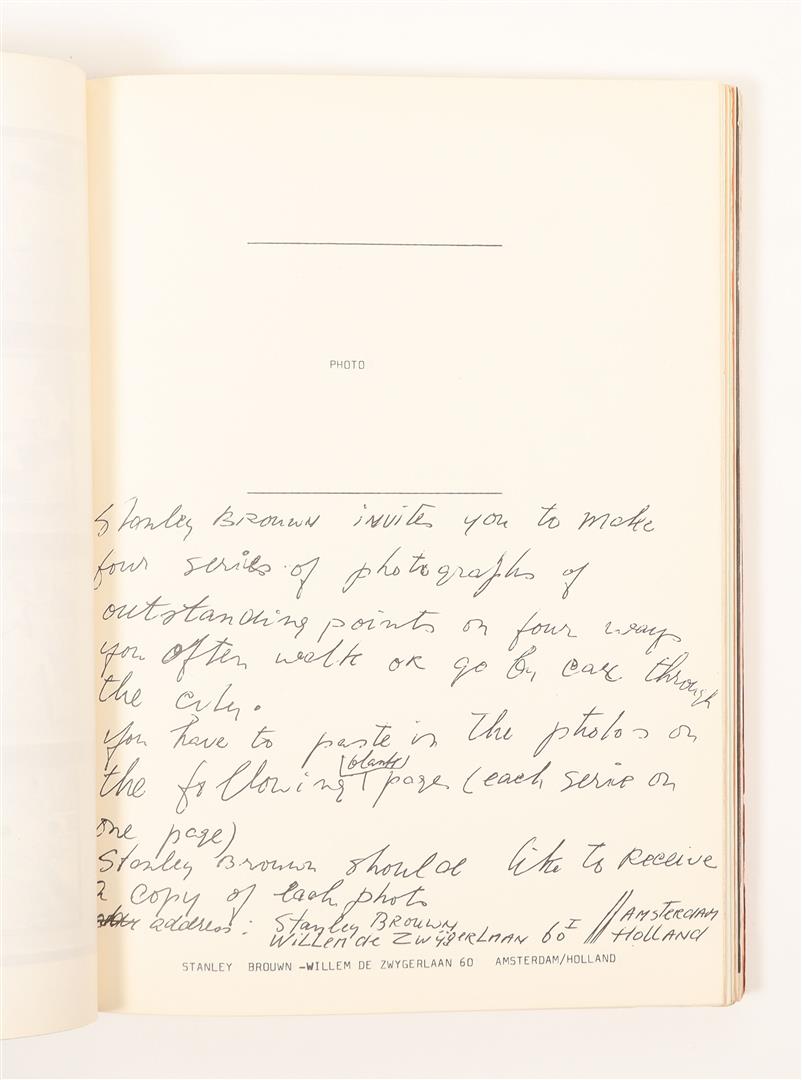 PHOTO
Stanley BROUWN iNViTES you to make
four series of photographs of
outstanding points on four ways
you often walk or go by car through
the city.
you have to paste in the photos on
the following (blank) pages (each serie on
one page)
Stanley Brouwn should like to Receive
a copy of each photo
address: Stanley BROUWN // AMSTERDAM
Willem de ZwijgerLAAN 60 I // HOLLAND
STANLEY BROUWN -WILLEM DE ZWYGERLAAN 60 AMSTERDAM/HOLLAND